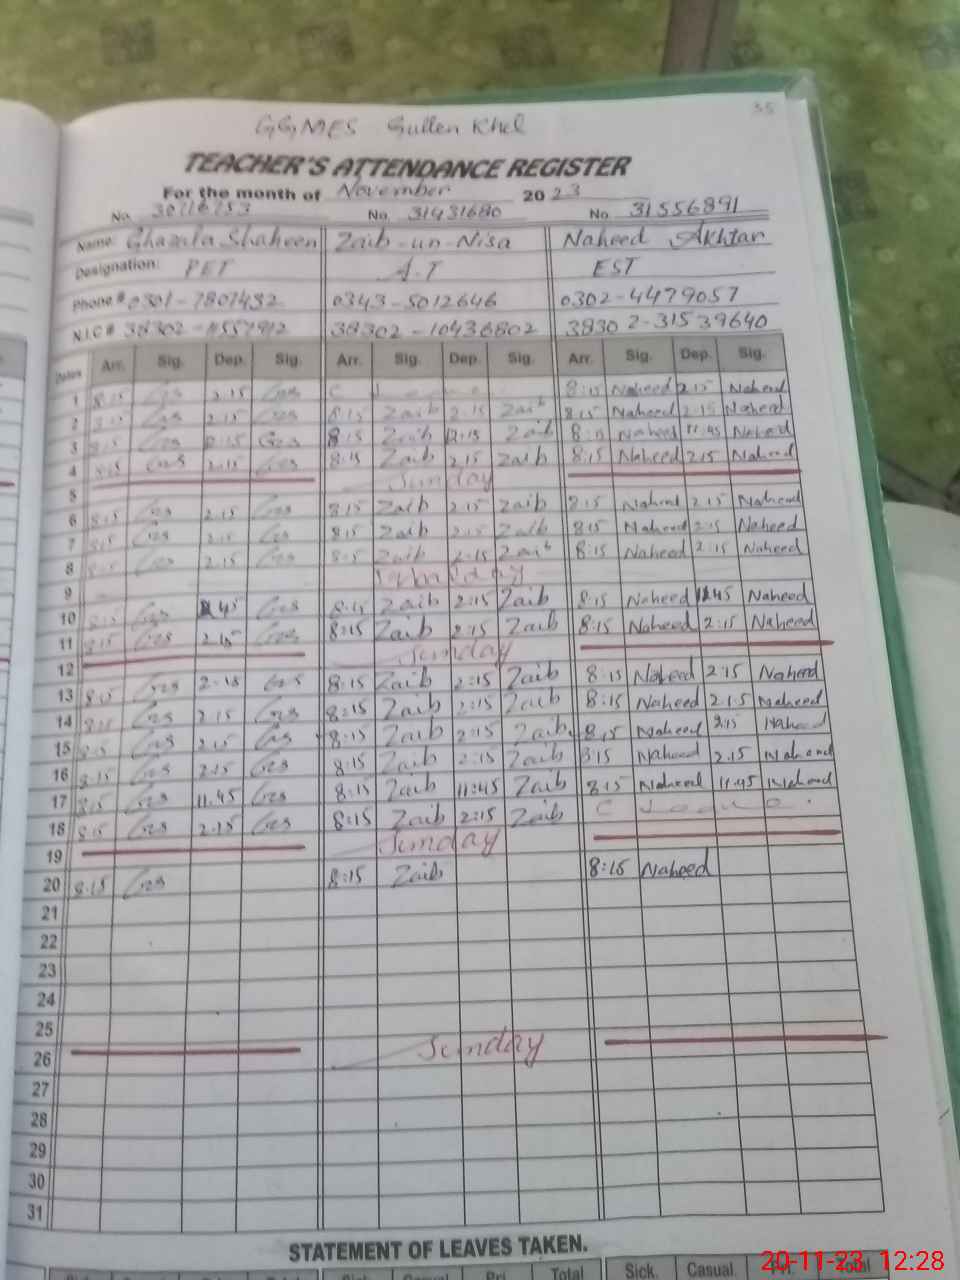 35
GGMES Sullen Khel
TEACHER'S ATTENDANCE REGISTER
For the month of November 2023
No. No. 31431680 No. 31556891
Name: Ghazala Shaheen Zaib-un-Nisa Naheed Akhtar
Designation: PET A.T EST
Phone # 0301-7801432 0343-5012646 0302-4479057
N.I.C # 38302- 38302-10436802 38302-31539640
Dates Arr. Sig. Dep. Sig. Arr. Sig. Dep. Sig. Arr. Sig. Dep. Sig.
1 8:15 2.15 C Leave 8:15 Naheed 2:15 Naheed
2 8:15 2.15 8:15 Zaib 2:15 Zaib 8:15 Naheed 2:15 Naheed
3 8:15 8:15 Zaib 12:15 Zaib 8:15 Naheed 11:45 Naheed
4 8:15 2.15 8:15 Zaib 2:15 Zaib 8:15 Naheed 2:15 Naheed
5 Sunday
6 8:15 2.15 8:15 Zaib 2:15 Zaib 8:15 Naheed 2:15 Naheed
7 8:15 2.15 8:15 Zaib 2:15 Zaib 8:15 Naheed 2:15 Naheed
8 8:15 2.15 8:15 Zaib 2:15 Zaib 8:15 Naheed 2:15 Naheed
9
10 8:15 8:15 Zaib 2:15 Zaib 8:15 Naheed Naheed
11 8:15 2.15 8:15 Zaib 2:15 Zaib 8:15 Naheed 2:15 Naheed
12 Sunday
13 8:15 2.15 8:15 Zaib 2:15 Zaib 8:15 Naheed 2:15 Naheed
14 8:15 2.15 8:15 Zaib 2:15 Zaib 8:15 Naheed 2:15 Naheed
15 8:15 2.15 8:15 Zaib 2:15 Zaib 8:15 Naheed 2:15 Naheed
16 8:15 2.15 8:15 Zaib 2:15 Zaib 8:15 Naheed 2:15 Naheed
17 8:15 11.45 8:15 Zaib 11:45 Zaib 8:15 Naheed 11:45 Naheed
18 8:15 2.15 8:15 Zaib 2:15 Zaib C Leave
19 Sunday
20 8:15 8:15 Zaib 8:15 Naheed
21
22
23
24
25
26 Sunday
27
28
29
30
31
STATEMENT OF LEAVES TAKEN.
Total Sick. Casual Total
20-11-23 12:28